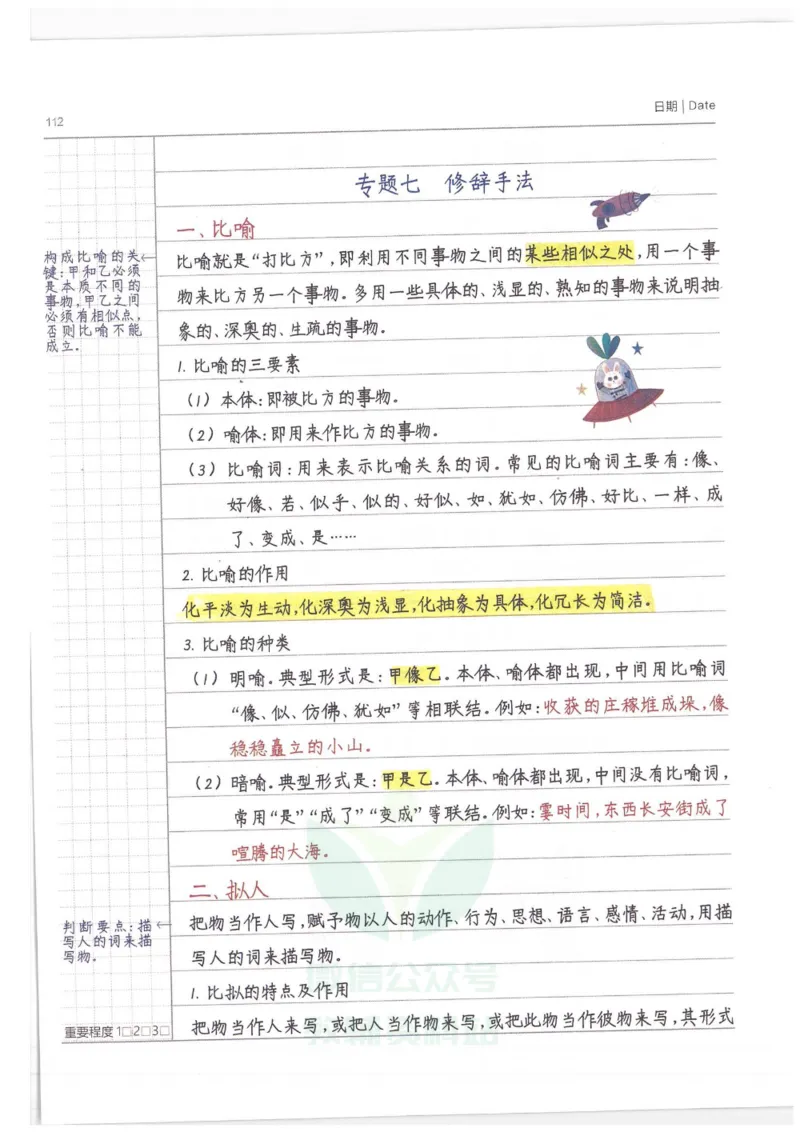 112
日期 | Date
专题七 修辞手法
一、比喻
比喻就是“打比方”,即利用不同事物之间的某些相似之处,用一个事
物来比方另一个事物。多用一些具体的、浅显的、熟知的事物来说明抽
象的、深奥的、生疏的事物。
构成比喻的关
键:甲和乙必须
是本质不同的
事物,甲乙之间
必须有相似点,
否则比喻不能
成立。
1. 比喻的三要素
(1)本体:即被比方的事物。
(2)喻体:即用来作比方的事物。
(3)比喻词:用来表示比喻关系的词。常见的比喻词主要有:像、
好像、若、似乎、似的、好似、如、犹如、仿佛、好比、一样、成
了、变成、是……
2. 比喻的作用
化平淡为生动,化深奥为浅显,化抽象为具体,化冗长为简洁。
3. 比喻的种类
(1)明喻。典型形式是:甲像乙。本体、喻体都出现,中间用比喻词
“像、似、仿佛、犹如”等相联结。例如:收获的庄稼堆成垛,像
稳稳矗立的小山。
(2)暗喻。典型形式是:甲是乙。本体、喻体都出现,中间没有比喻词,
常用“是”“成了”“变成”等联结。例如:霎时间,东西长安街成了
喧腾的大海。
二、拟人
把物当作人写,赋予物以人的动作、行为、思想、语言、感情、活动,用描
写人的词来描写物。
判断要点:描
写人的词来描
写物。
1. 比拟的特点及作用
把物当作人来写,或把人当作物来写,或把此物当作彼物来写,其形式
重要程度 1□2□3□
微信公众号